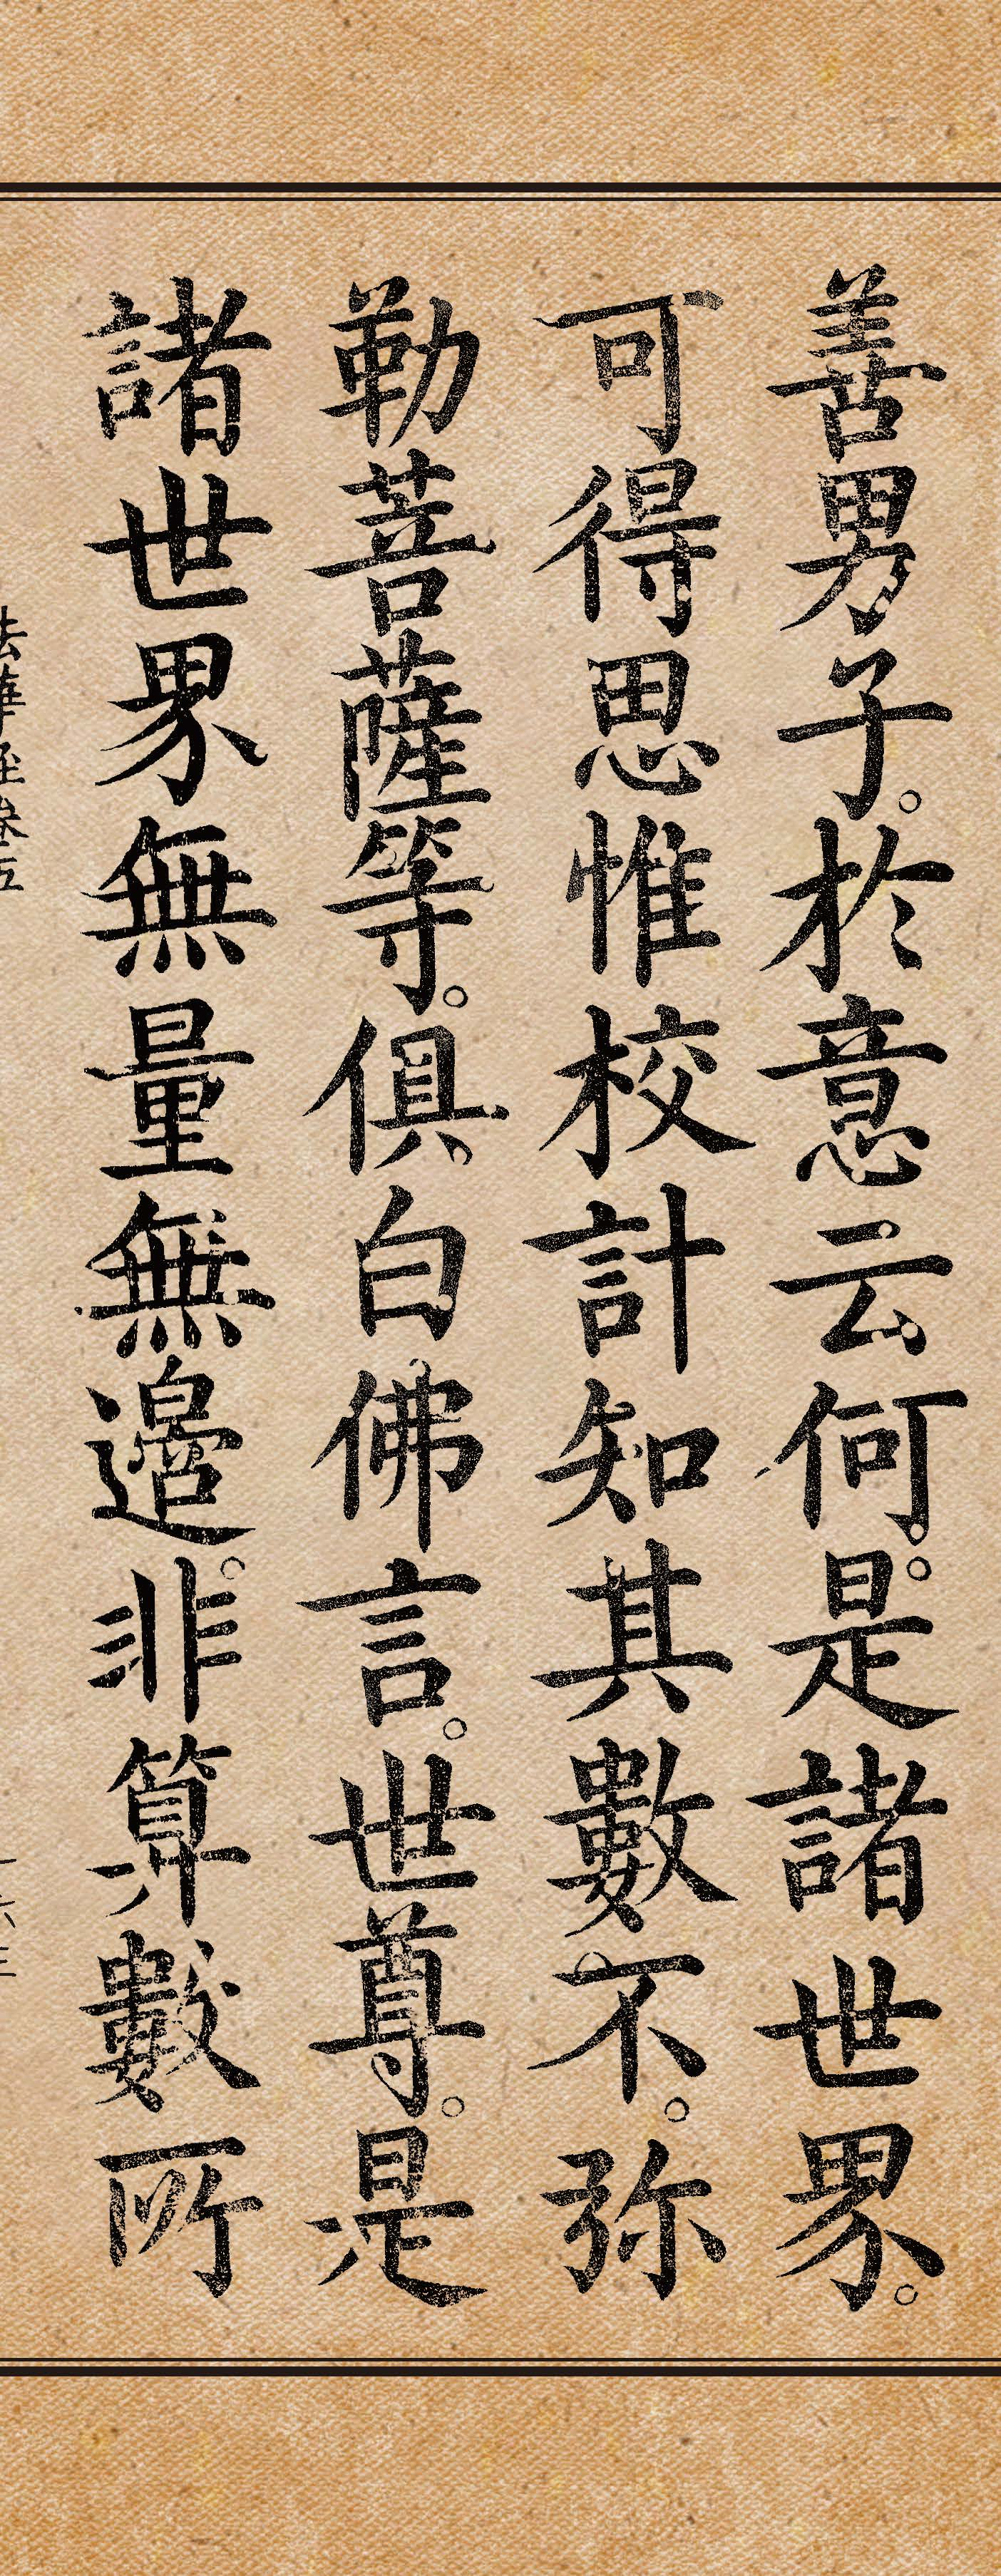 善男子。於意云何。是諸世界。
可得思惟校計知其數不。弥
勒菩薩等。俱白佛言。世尊。是
諸世界無量無邊。非算數所
法華經卷五
一六三